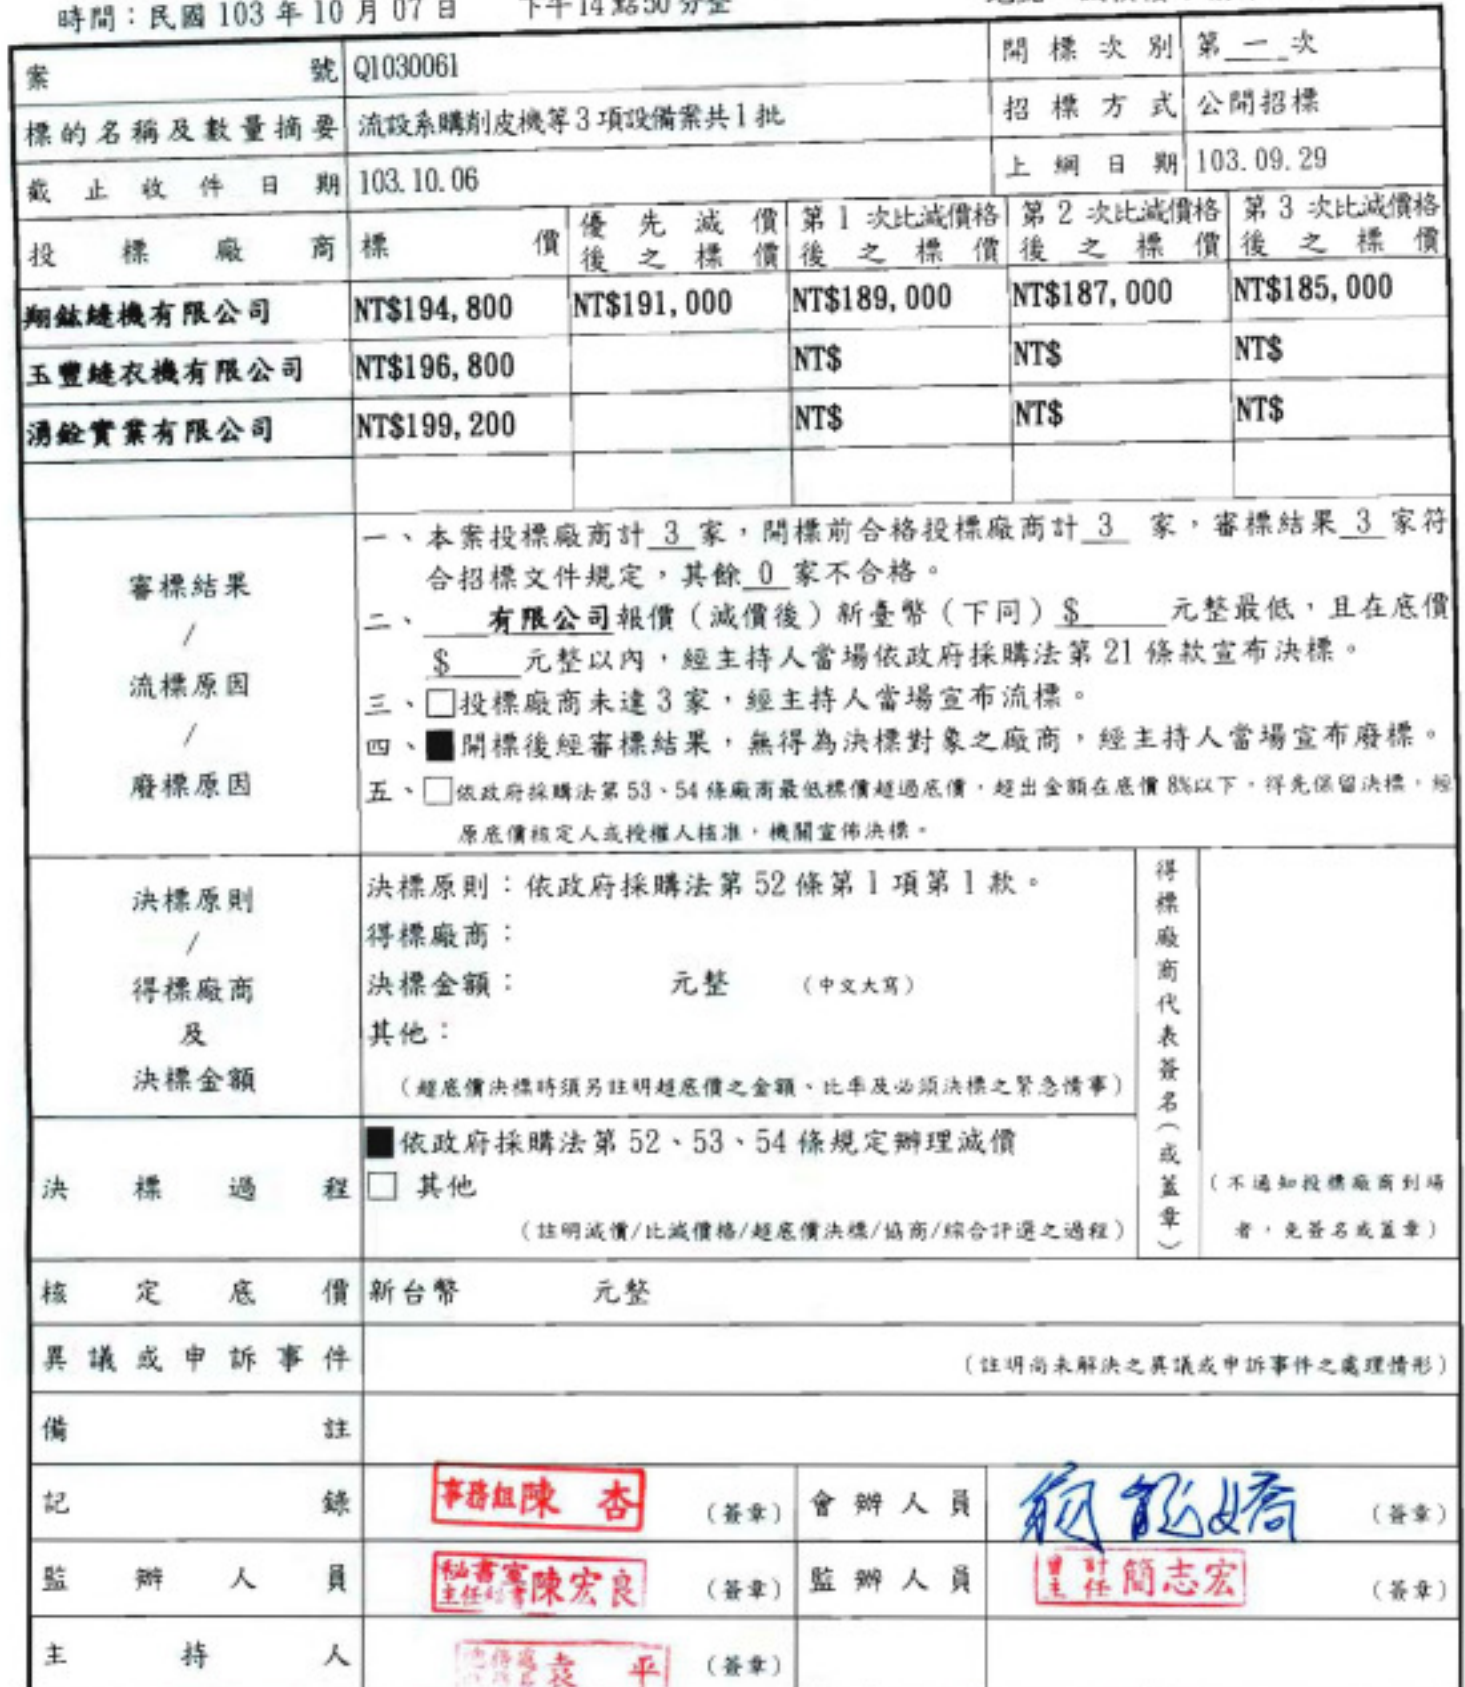 時間：民國 103 年 10 月 07 日 下午14點50分整
案號 Q1030061 開標次別 第一次
標的名稱及數量摘要 流設系購削皮機等3項設備案共1批 招標方式 公開招標
截止收件日期 103.10.06 上網日期 103.09.29
投標廠商 標價 優先減價後之標價 第1次比減價格後之標價 第2次比減價格後之標價 第3次比減價格後之標價
翔鉉縫機有限公司 NT$194,800 NT$191,000 NT$189,000 NT$187,000 NT$185,000
玉豐縫衣機有限公司 NT$196,800 NT$ NT$ NT$
湧銓實業有限公司 NT$199,200 NT$ NT$ NT$
審標結果
/
流標原因
/
廢標原因
一、本案投標廠商計 3 家，開標前合格投標廠商計 3 家，審標結果 3 家符
合招標文件規定，其餘 0 家不合格。
二、 有限公司報價（減價後）新臺幣（下同）$ 元整最低，且在底價
$ 元整以內，經主持人當場依政府採購法第 21 條款宣布決標。
三、□投標廠商未達3家，經主持人當場宣布流標。
四、■開標後經審標結果，無得為決標對象之廠商，經主持人當場宣布廢標。
五、□依政府採購法第53、54條廠商最低標價超過底價，超出金額在底價8%以下，得先保留決標，經
原底價核定人或授權人核准，機關宣佈決標。
決標原則
/
得標廠商
及
決標金額
決標原則：依政府採購法第52條第1項第1款。
得標廠商：
決標金額： 元整 （中文大寫）
其他：
（超底價決標時須另註明超底價之金額、比率及必須決標之緊急情事）
得標廠商代表簽名（或蓋章）
（不通知投標廠商到場
者，免簽名或蓋章）
決標過程
■依政府採購法第 52、53、54 條規定辦理減價
□ 其他
（註明減價/比減價格/超底價決標/協商/綜合評選之過程）
核定底價 新台幣 元整
異議或申訴事件 （註明尚未解決之異議或申訴事件之處理情形）
備註
記錄 事務組陳杏 （簽章） 會辦人員 （簽章）
監辦人員 秘書室主任秘書陳宏良 （簽章） 監辦人員 會計主任簡志宏 （簽章）
主持人 袁平 （簽章）